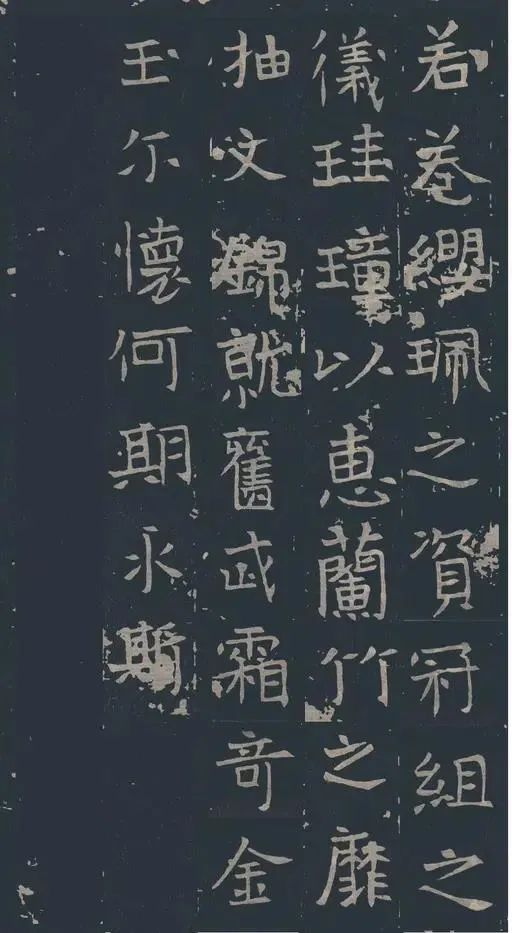 若莖纓珮之資冠組之
儀珪璋以惠蘭竹之靡
抽文錦就舊武霜奇金
玉尓懷何期永斯